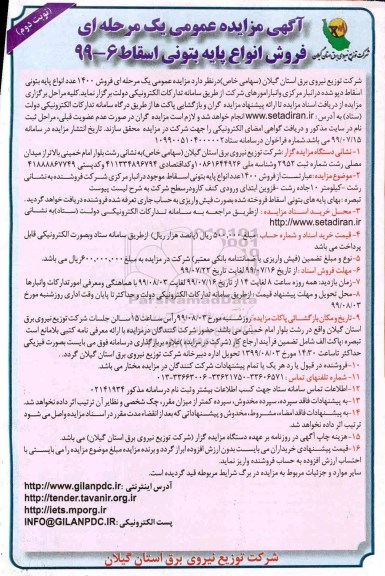 (نوبت دوم)
آگهی مزایده عمومی یک مرحله ای
فروش انواع پایه بتونی اسقاط ۶-۹۹
شرکت توزیع نیروی برق استان گیلان (سهامی خاص) در نظر دارد مزایده عمومی یک مرحله ای فروش ۱۴۰۰ عدد انواع پایه بتونی
اسقاط دپو شده در انبار مرکزی و انبار امورهای شرکت از طریق سامانه تدارکات الکترونیکی دولت برگزار نماید. کلیه مراحل برگزاری
مزایده از دریافت اسناد مزایده تا ارائه پیشنهاد مزایده گران و بازگشایی پاکت ها از طریق درگاه سامانه تدارکات الکترونیکی دولت
(ستاد) به آدرس: www.setadiran.ir انجام خواهد شد و لازم است مزایده گران در صورت عدم عضویت قبلی، مراحل ثبت
نام در سایت مذکور و دریافت گواهی امضای الکترونیکی را جهت شرکت در مزایده محقق سازند. تاریخ انتشار مزایده در سامانه
۹۹/۰۷/۱۵ می باشد. شماره فراخوان در سامانه ستاد
۱- نشانی دستگاه مزایده گزار: شرکت توزیع نیروی برق استان گیلان (سهامی خاص) به نشانی رشت بلوار امام خمینی بالاتر از میدان
مصلی رشت شماره ثبت ۲۹۵۲ و شناسه ملی ۱۰۸۶۱۶۴۴۹۲۶ کد اقتصادی ۴۱۱۳۳۴۸۹۶۷۹۴ و کدپستی ۴۱۸۸۸۸۶۷۷۴۹
۲- موضوع مزایده: عبارتست از فروش ۱۴۰۰ عدد انواع پایه بتونی اسقاط موجود در انبار مرکزی شرکت فروشنده به نشانی
رشت - کیلومتر ۱۰ جاده رشت - قزوین ابتدای ورودی کنف کار و در سطح شرکت به شرح لیست پیوست
تبصره: بهای پایه های بتونی اسقاط فروخته شده بصورت فیش واریزی به حساب جاری تعرفه شده فروشنده دریافت خواهد گردید.
۳- محل خرید اسناد مزایده: از طریق مراجعه به سامانه تدارکات الکترونیکی دولت (ستاد) به نشانی
http://www.setadiran.ir
۴- قیمت خرید اسناد و شماره حساب: مبلغ ۵۰۰,۰۰۰ ریال (پانصد هزار ریال) از طریق سامانه ستاد و بصورت الکترونیکی قابل
پرداخت می باشد
۵- نوع و مبلغ تضمین (فیش واریزی یا ضمانتنامه بانکی معتبر) شرکت در مزایده به مبلغ ۶۰۰,۰۰۰,۰۰۰ ریال می باشد.
۶- مهلت فروش اسناد: از تاریخ ۹۹/۰۷/۱۶ لغایت تاریخ ۹۹/۰۷/۲۲
۷- زمان بازدید: همه روزه ساعت ۸ لغایت ۱۴ از تاریخ ۹۹/۰۷/۱۶ لغایت ۹۹/۰۸/۰۳ با هماهنگی و معرفی امور تدارکات و انبارها
۸- محل تحویل و مهلت پیشنهاد قیمت: از طریق سامانه تدارکات الکترونیکی دولت و حداکثر تا پایان وقت اداری روز شنبه مورخ
۹۹/۰۸/۰۳
۹- تاریخ و مکان بازگشایی پاکات مزایده: روز شنبه مورخ ۹۹/۰۸/۰۳ راس ساعت ۱۵ سالن جلسات شرکت توزیع نیروی برق
استان گیلان واقع در رشت بلوار امام خمینی می باشد. حضور شرکت کنندگان در مزایده با ارائه معرفی نامه کتبی بلامانع است
تبصره: پاکت الف شامل تضمین فرآیند ارجاع کار (شرکت در مزایده) علاوه بر بارگذاری در سامانه فوق می بایست بصورت فیزیکی
حداکثر تا ساعت ۱۴:۳۰ مورخ ۱۳۹۹/۰۸/۰۳ تحویل اداره دبیرخانه شرکت توزیع نیروی برق استان گیلان گردد.
۱۰- فروشنده در قبول یا رد هر یک یا تمام پیشنهادات شرکت کنندگان در مزایده مختار می باشد.
۱۱- شماره تلفنهای تماس: ۳۳۶۰۶۵۷۱-۳۳۶۲۱۷۵۰-۰۱۳-۳۳۶۶۳۰۰۶
۱۲- اطلاعات تماس سامانه ستاد جهت کسب اطلاعات بیشتر و ثبت نام در سامانه مذکور ۰۲۱۴۱۹۳۴
۱۳- به پیشنهادات فاقد سپرده، سپرده مخدوش، سپرده کمتر از میزان مقرر، چک شخصی و نظایر آن ترتیب اثر داده نخواهد شد.
۱۴- به پیشنهادات فاقد امضاء، مشروط، مخدوش و پیشنهاداتی که بعد از انقضاء مدت مقرر در اسناد مزایده واصل می شود
ترتیب اثر داده نخواهد شد.
۱۵- هزینه چاپ آگهی در روزنامه بر عهده دستگاه مزایده گزار (شرکت توزیع نیروی برق استان گیلان) می باشد.
۱۶- قیمت پیشنهادی خریداران می بایست بدون ارزش افزوده ابراز گردد و برنده مزایده مبلغ موضوع مزایده را می بایستی با
احتساب ارزش افزوده به حساب فروشنده واریز نماید.
سایر موارد و جزئیات مربوط به مزایده در برگ شرایط مربوطه قید گردیده است.
آدرس اینترنتی: http://www.gilanpdc.ir
http://tender.tavanir.org.ir
http://iets.mporg.ir
پست الکترونیکی: INFO@GILANPDC.IR
شرکت توزیع نیروی برق استان گیلان